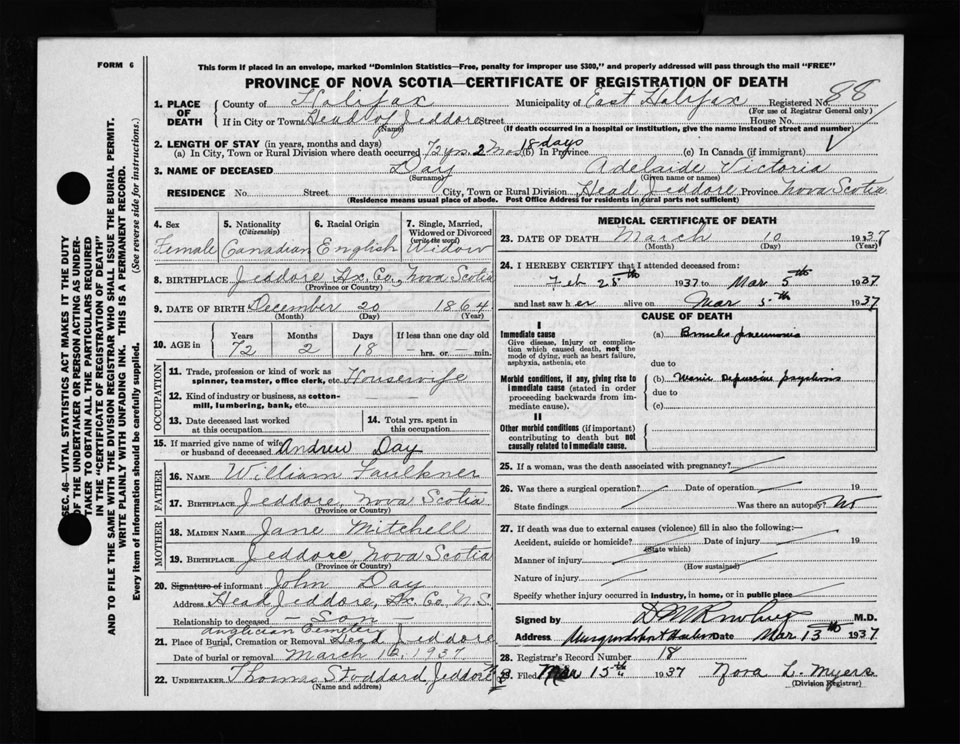 FORM 6
This form if placed in an envelope, marked "Dominion Statistics—Free, penalty for improper use $300," and properly addressed will pass through the mail "FREE"
PROVINCE OF NOVA SCOTIA—CERTIFICATE OF REGISTRATION OF DEATH
SEC. 46—VITAL STATISTICS ACT MAKES IT THE DUTY
OF THE UNDERTAKER OR PERSON ACTING AS UNDER-
TAKER TO OBTAIN ALL THE PARTICULARS REQUIRED
IN THE "CERTIFICATE OF REGISTRATION OF DEATH"
AND TO FILE THE SAME WITH THE DIVISION REGISTRAR WHO SHALL ISSUE THE BURIAL PERMIT.
WRITE PLAINLY WITH UNFADING INK. THIS IS A PERMANENT RECORD.
Every item of information should be carefully supplied. (See reverse side for instructions.)
1. PLACE OF DEATH
County of Halifax Municipality of East Halifax Registered No. 88
(For use of Registrar General only)
If in City or Town Head of Jeddore Street House No.
(Name) (If death occurred in a hospital or institution, give the name instead of street and number)
2. LENGTH OF STAY (in years, months and days)
(a) In City, Town or Rural Division where death occurred 72 yrs. 2 Mos 18 days (b) In Province (c) In Canada (if immigrant)
3. NAME OF DECEASED Day Adelaide Victoria
(Surname) (Given name or names)
RESIDENCE No. Street City, Town or Rural Division Head Jeddore Province Nova Scotia
(Residence means usual place of abode. Post Office Address for residents in rural parts not sufficient)
4. Sex Female
5. Nationality (Citizenship) Canadian
6. Racial Origin English
7. Single, Married, Widowed or Divorced (write the word) Widow
8. BIRTHPLACE Jeddore Hx. Co., Nova Scotia
(Province or Country)
9. DATE OF BIRTH December 20 1864
(Month) (Day) (Year)
10. AGE in Years 72 Months 2 Days 18 If less than one day old — hrs. or — min.
OCCUPATION
11. Trade, profession or kind of work as spinner, teamster, office clerk, etc. Housewife
12. Kind of industry or business, as cotton-mill, lumbering, bank, etc.
13. Date deceased last worked at this occupation
14. Total yrs. spent in this occupation
15. If married give name of wife or husband of deceased Andrew Day
FATHER
16. NAME William Faulkner
17. BIRTHPLACE Jeddore, Nova Scotia
(Province or Country)
MOTHER
18. MAIDEN NAME Jane Mitchell
19. BIRTHPLACE Jeddore, Nova Scotia
(Province or Country)
20. Signature of informant John Day
Address Head Jeddore, Hx. Co. N.S.
Relationship to deceased — Son —
Anglician Cemetery
21. Place of Burial, Cremation or Removal Head Jeddore
Date of burial or removal March 12, 1937
22. UNDERTAKER Thomas Stoddard, Jeddore
(Name and address)
MEDICAL CERTIFICATE OF DEATH
23. DATE OF DEATH March 10 1937
(Month) (Day) (Year)
24. I HEREBY CERTIFY that I attended deceased from:
Feb 25th 1937 to Mar 5th 1937
and last saw her alive on Mar 5th 1937
CAUSE OF DEATH
I
Immediate cause
Give disease, injury or complication which caused death, not the mode of dying, such as heart failure, asphyxia, asthenia, etc
(a) Broncho pneumonia
due to
Morbid conditions, if any, giving rise to immediate cause (stated in order proceeding backwards from immediate cause).
(b) Manic Depressive Psychosis
due to
(c)
II
Other morbid conditions (if important) contributing to death but not causally related to immediate cause.
25. If a woman, was the death associated with pregnancy?
26. Was there a surgical operation? Date of operation 19
State findings Was there an autopsy? No
27. If death was due to external causes (violence) fill in also the following:—
Accident, suicide or homicide? Date of injury 19
(State which)
Manner of injury
(How sustained)
Nature of injury
Specify whether injury occurred in Industry, in home, or in public place
Signed by M.D.
Address Date Mar 13th 1937
28. Registrar's Record Number 18
29. Filed Mar 15th 1937 Nora L. Myers
(Division Registrar)